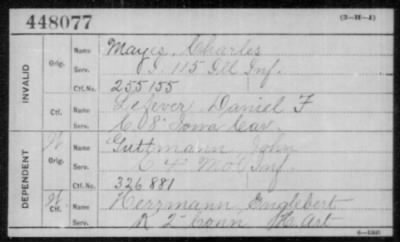 448077 (3-H-A)
INVALID
Orig. Name Mayes, Charles
Serv. I. 115 Ill Inf.
Ctf. No. 255155
Ctf. Name Lefever Daniel F
Serv. C 8" Iowa Cav.
DEPENDENT
W Orig. Name Guttmann John
Serv. C 4 Mo Inf
Ctf. No. 326.881
W Ctf. Name Herzmann Englebert
Serv. K 2" Conn H Art